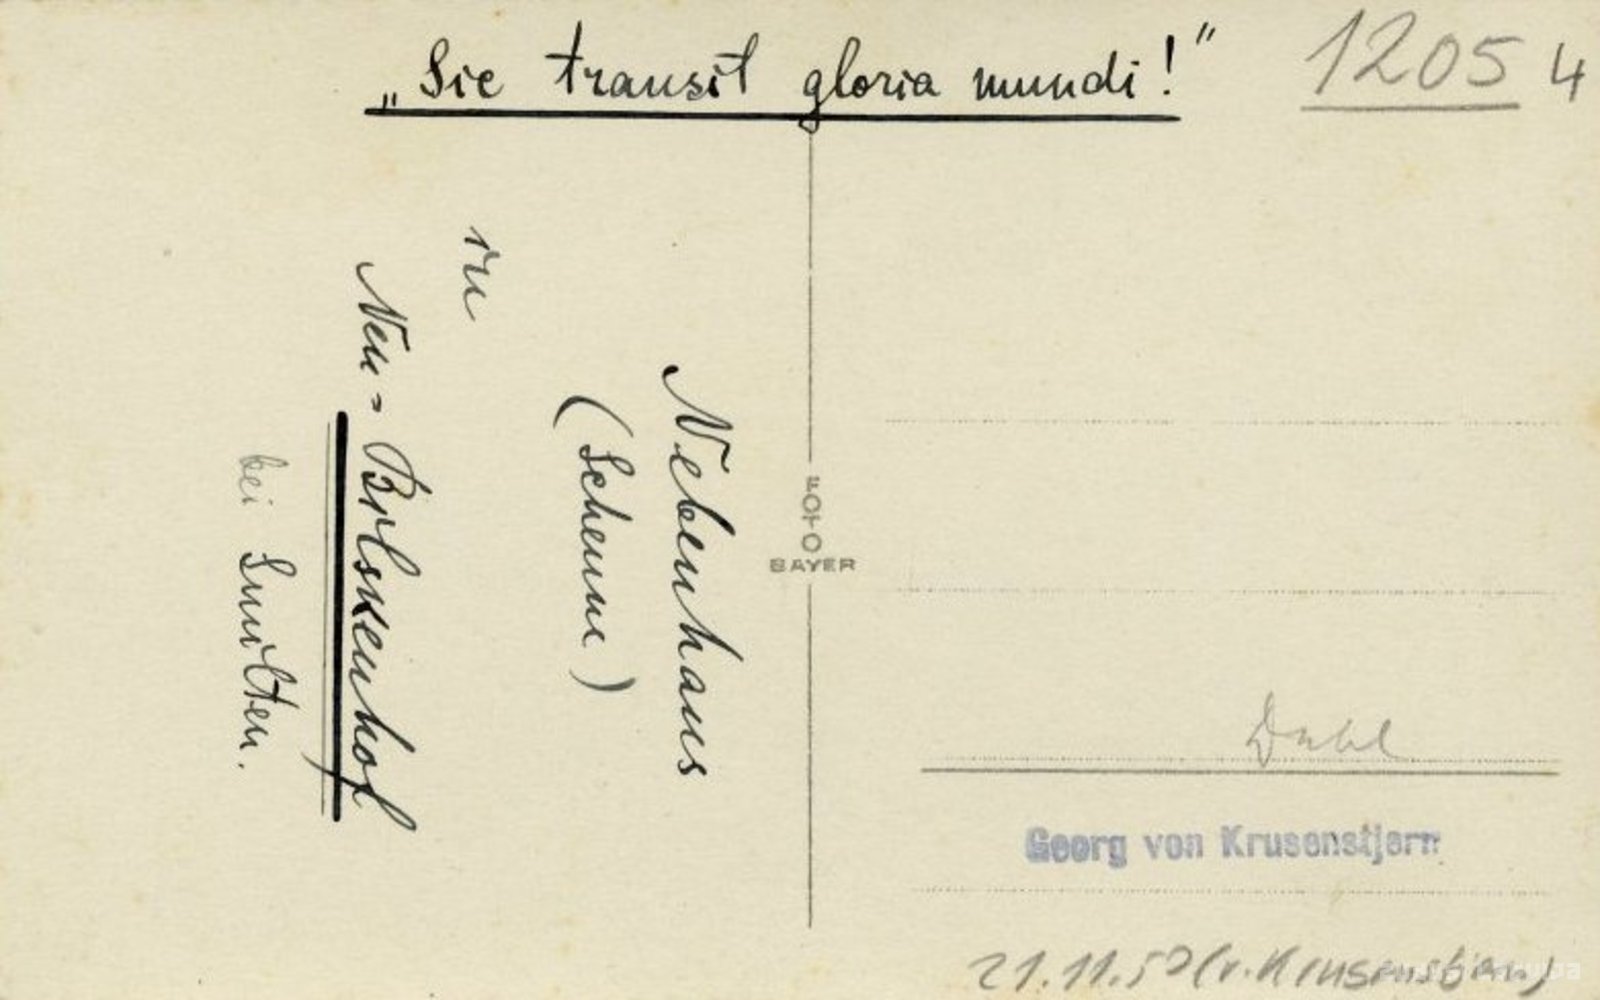 „Sic transit gloria mundi!"
1205 4
Nebenhaus
(Scheune)
in
Neu-Bilskenhof
bei Smilten.
FOTO
BAYER
Dahl
Georg von Krusenstjern
21.11.57 (v. Krusenstjern)